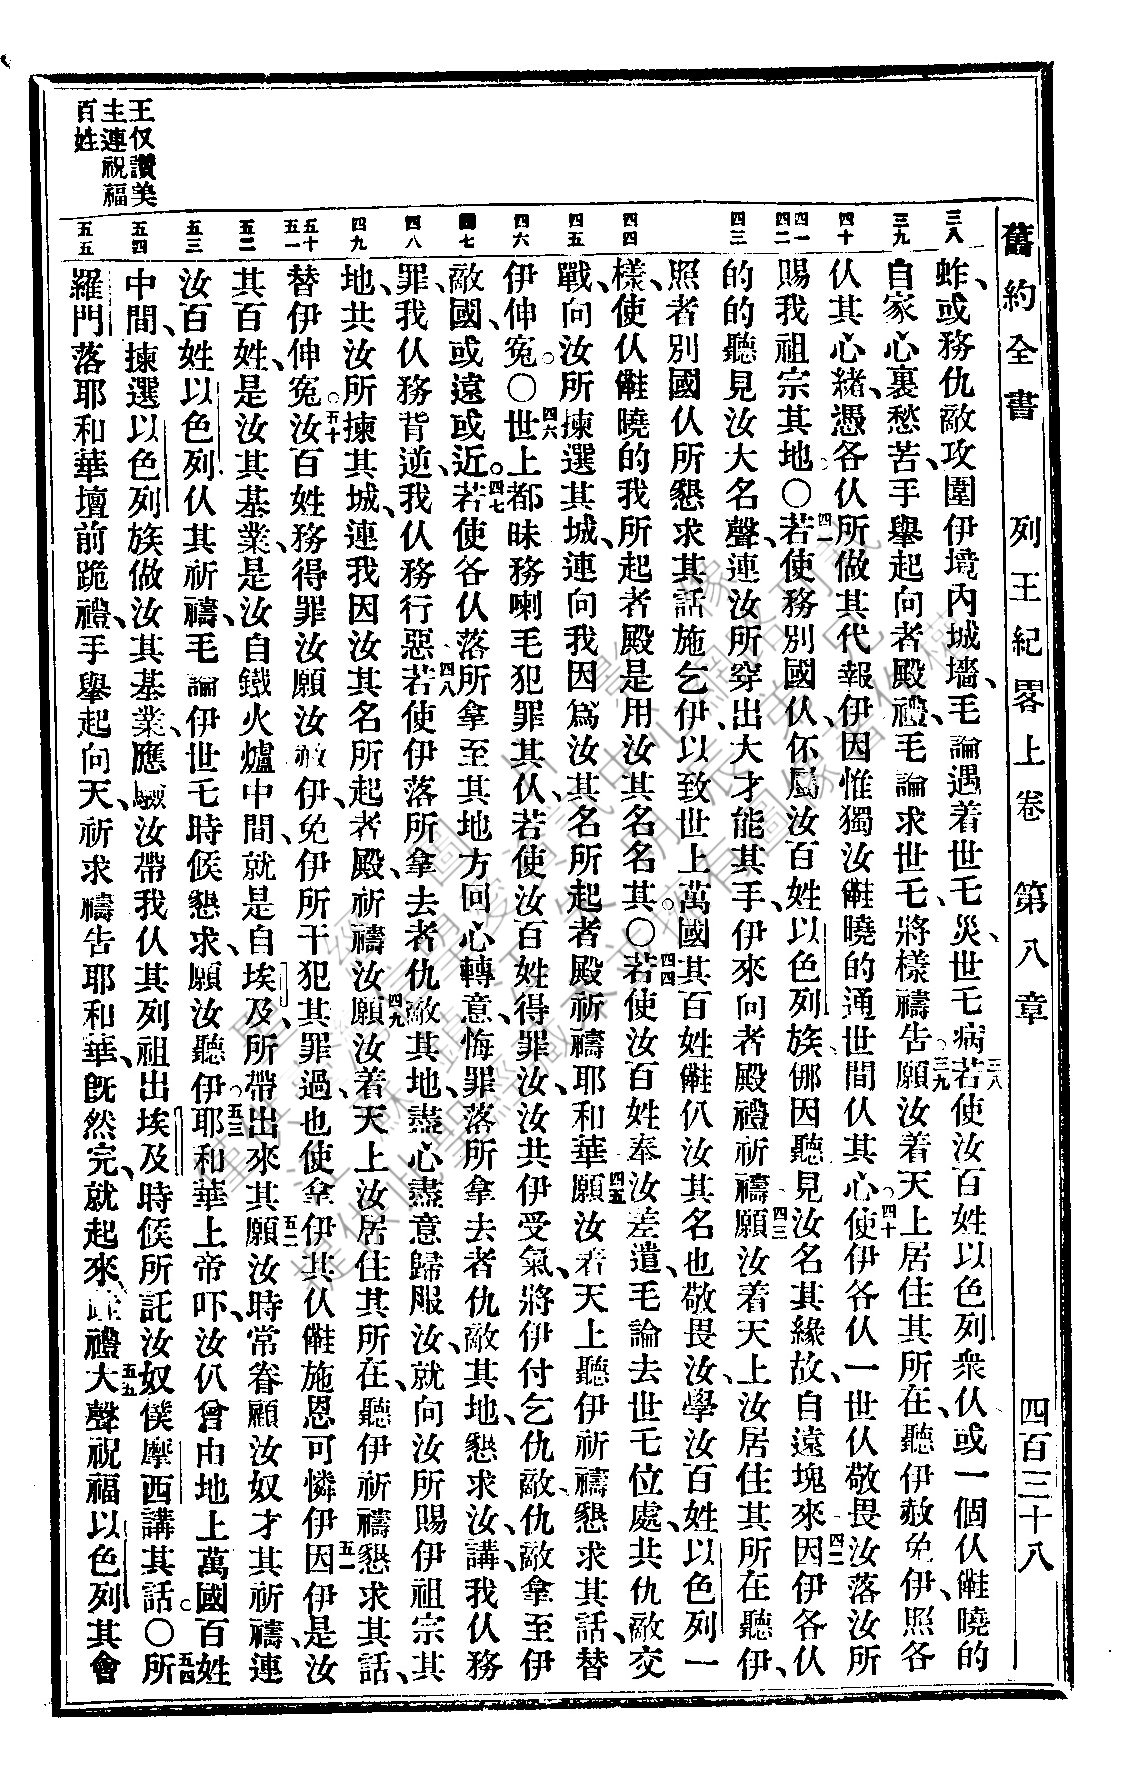 舊約全書 列王紀畧上卷 第八章 四百三十八
三八
三九
四十
四一
四二
四三
四四
四五
四六
四七
四八
四九
五十
五一
五二
五三
五四
五五
蚱、或務仇敵攻圍伊境內城墻、毛論遇着世乇災、世乇病、三八若使汝百姓以色列衆仈、或一個仈、㑚曉的
自家心裏愁苦、手舉起向者殿、禮毛論求世乇、將樣禱告、三九願汝着天上居住其所在、聽伊赦免伊、照各
仈其心緒、憑各仈所做其代報伊、因惟獨汝㑚曉的通世間仈其心。四十使伊各仈一世仈敬畏汝、落汝所
賜我祖宗其地。〇四一若使務別國仈、伓屬汝百姓、以色列族、㑚因聽見汝名其緣故、自遠塊來、四二因伊各仈
的的聽見汝大名聲、連汝所穿出大才能其手、伊來向者殿禮祈禱、四三願汝着天上汝居住其所在聽伊、
照者別國仈所懇求其話施乞伊、以致世上萬國其百姓㑚仈汝其名、也敬畏汝、學汝百姓、以色列一
樣、使仈㑚曉的我所起者殿是用汝其名名其。〇四四若使汝百姓奉汝差遣、毛論去世乇位處、共仇敵交
戰、向汝所揀選其城、連向我因爲汝其名所起者殿祈禱耶和華、四五願汝着天上聽伊祈禱懇求其話、替
伊伸寃。〇四六世上都昧務喇毛犯罪其仈、若使汝百姓得罪汝、汝共伊受氣、將伊付乞仇敵、仇敵拿至伊
敵國、或遠或近。四七若使各仈落所拿至其地方、回心轉意、悔罪、落所拿去者仇敵其地、懇求汝、講、我仈務
罪、我仈務背逆、我仈務行惡、四八若使伊落所拿去者仇敵其地、盡心盡意歸服汝、就向汝所賜伊祖宗其
地、共汝所揀其城、連我因汝其名所起者殿、祈禱汝、四九願汝着天上汝居住其所在、聽伊祈禱懇求其話、
替伊伸寃。五十汝百姓務得罪汝、願汝赦伊、免伊所干犯其罪過、也使拿伊其仈㑚施恩可憐伊、五一因伊是汝
其百姓、是汝其基業、是汝自鐵火爐中間、就是自埃及、所帶出來其、五二願汝時常眷顧汝奴才其祈禱、連
汝百姓以色列仈其祈禱、毛論伊世乇時候懇求、願汝聽伊。五三耶和華上帝吓、汝仈曾由地上萬國百姓
中間、揀選以色列族做汝其基業、應驗汝帶我仈其列祖出埃及時候、所託汝奴僕摩西講其話。〇五四所
羅門落耶和華壇前跪禮、手舉起向天、祈求禱告耶和華、旣然完、就起來、禮、五五大聲祝福以色列其會
王仅讚美
主連祝福
百姓